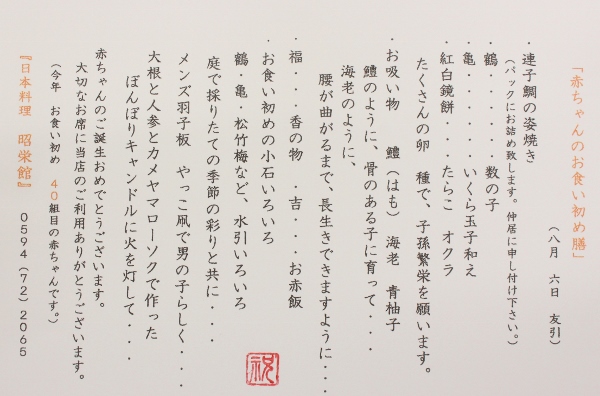 「赤ちゃんのお食い初め膳」
（八月　六日　友引）
・連子鯛の姿焼き
（パックにお詰め致します。仲居に申し付け下さい。）
・鶴・・・・・数の子
・亀・・・・・いくら玉子和え
・紅白鏡餅・・・たらこ　オクラ
たくさんの卵　種で、子孫繁栄を願います。
・お吸い物　鱧（はも）　海老　青柚子
鱧のように、骨のある子に育って・・・
海老のように、
腰が曲がるまで、長生きできますように・・・
・福・・・香の物　・吉・・・お赤飯
・お食い初めの小石いろいろ
鶴・亀・松竹梅など、水引いろいろ
庭で採りたての季節の彩りと共に・・・
メンズ羽子板　やっこ凧で男の子らしく・・・
大根と人参とカメヤマローソクで作った
ぼんぼりキャンドルに火を灯して・・・
赤ちゃんのご誕生おめでとうございます。
大切なお席に当店のご利用ありがとうございます。
（今年　お食い初め　４０組目の赤ちゃんです。）
『日本料理　昭栄館』　０５９４（７２）２０６５
祝